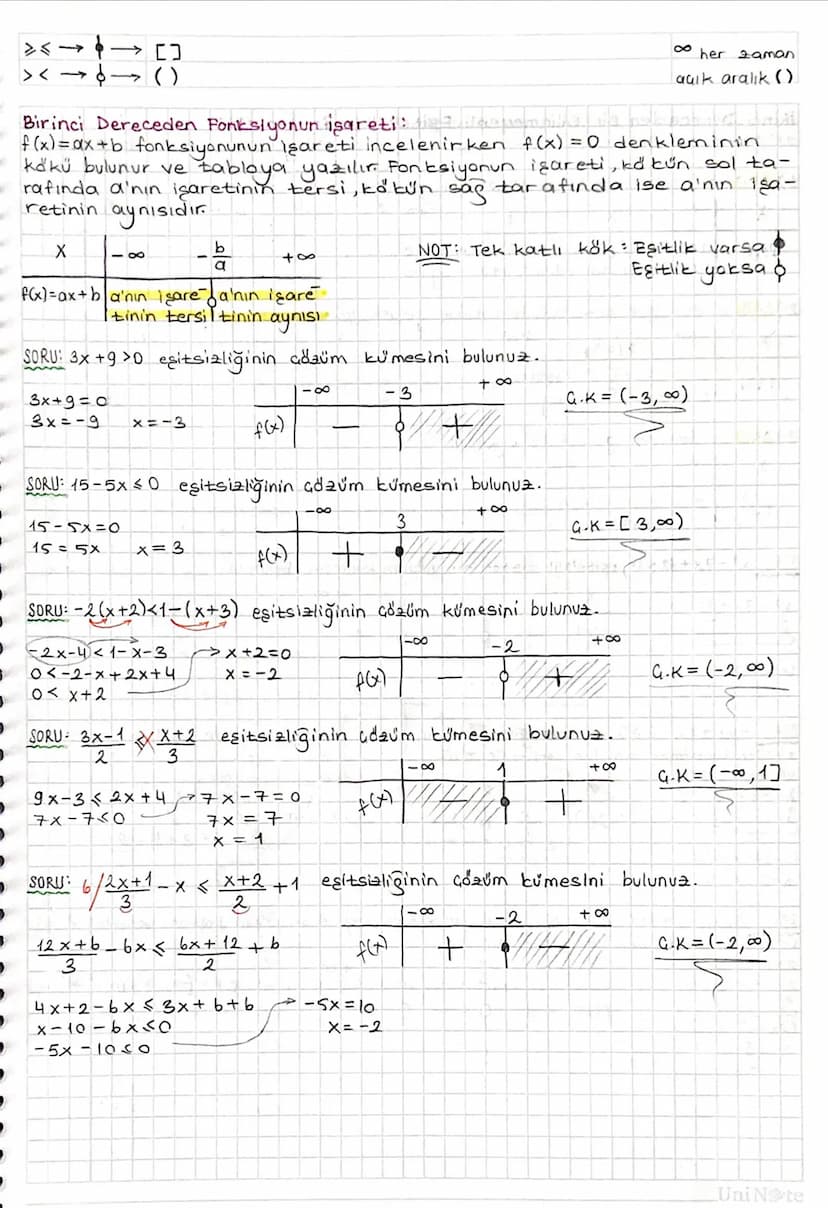 ⩾⩽ → ⏺ → [ ]
> < → ○ → ( )
∞ her zaman
açık aralık ()
Birinci Dereceden Fonksiyonun işareti:
f(x)=ax+b fonksiyonunun işareti incelenirken f(x)=0 denkleminin
kökü bulunur ve tabloya yazılır. Fonksiyonun işareti, kökün sol ta-
rafında a'nın işaretinin tersi, kökün sağ tarafında ise a'nın işa-
retinin aynısıdır.
x -∞ -b/a +∞
f(x)=ax+b a'nın işare- a'nın işare-
tinin tersi tinin aynısı
NOT: Tek katlı kök: Eşitlik varsa
Eşitlik yoksa
SORU: 3x+9>0 eşitsizliğinin çözüm kümesini bulunuz.
3x+9=0
3x=-9 x=-3
-∞ -3 +∞
f(x) - +
Ç.K=(-3,∞)
SORU: 15-5x⩽0 eşitsizliğinin çözüm kümesini bulunuz.
15-5x=0
15=5x x=3
-∞ 3 +∞
f(x) + -
Ç.K=[3,∞)
SORU: -2(x+2)<1-(x+3) eşitsizliğinin çözüm kümesini bulunuz.
-2x-4<1-x-3 → x+2=0
0<-2-x+2x+4 x=-2
0< x+2
-∞ -2 +∞
f(x) - +
Ç.K=(-2,∞)
SORU: 3x-1/2 ⩽ x+2/3 eşitsizliğinin çözüm kümesini bulunuz.
9x-3⩽2x+4 → 7x-7=0
7x-7⩽0 7x=7
x=1
-∞ 1 +∞
f(x) - +
Ç.K=(-∞,1]
SORU: 6/ 2x+1/3 -x ⩽ x+2/2 +1 eşitsizliğinin çözüm kümesini bulunuz.
12x+6/3 -6x⩽ 6x+12/2 +6
-∞ -2 +∞
f(x) + -
Ç.K=(-2,∞)
4x+2-6x⩽3x+6+6 → -5x=10
x-10-6x⩽0 x=-2
-5x-10⩽0
UniNote